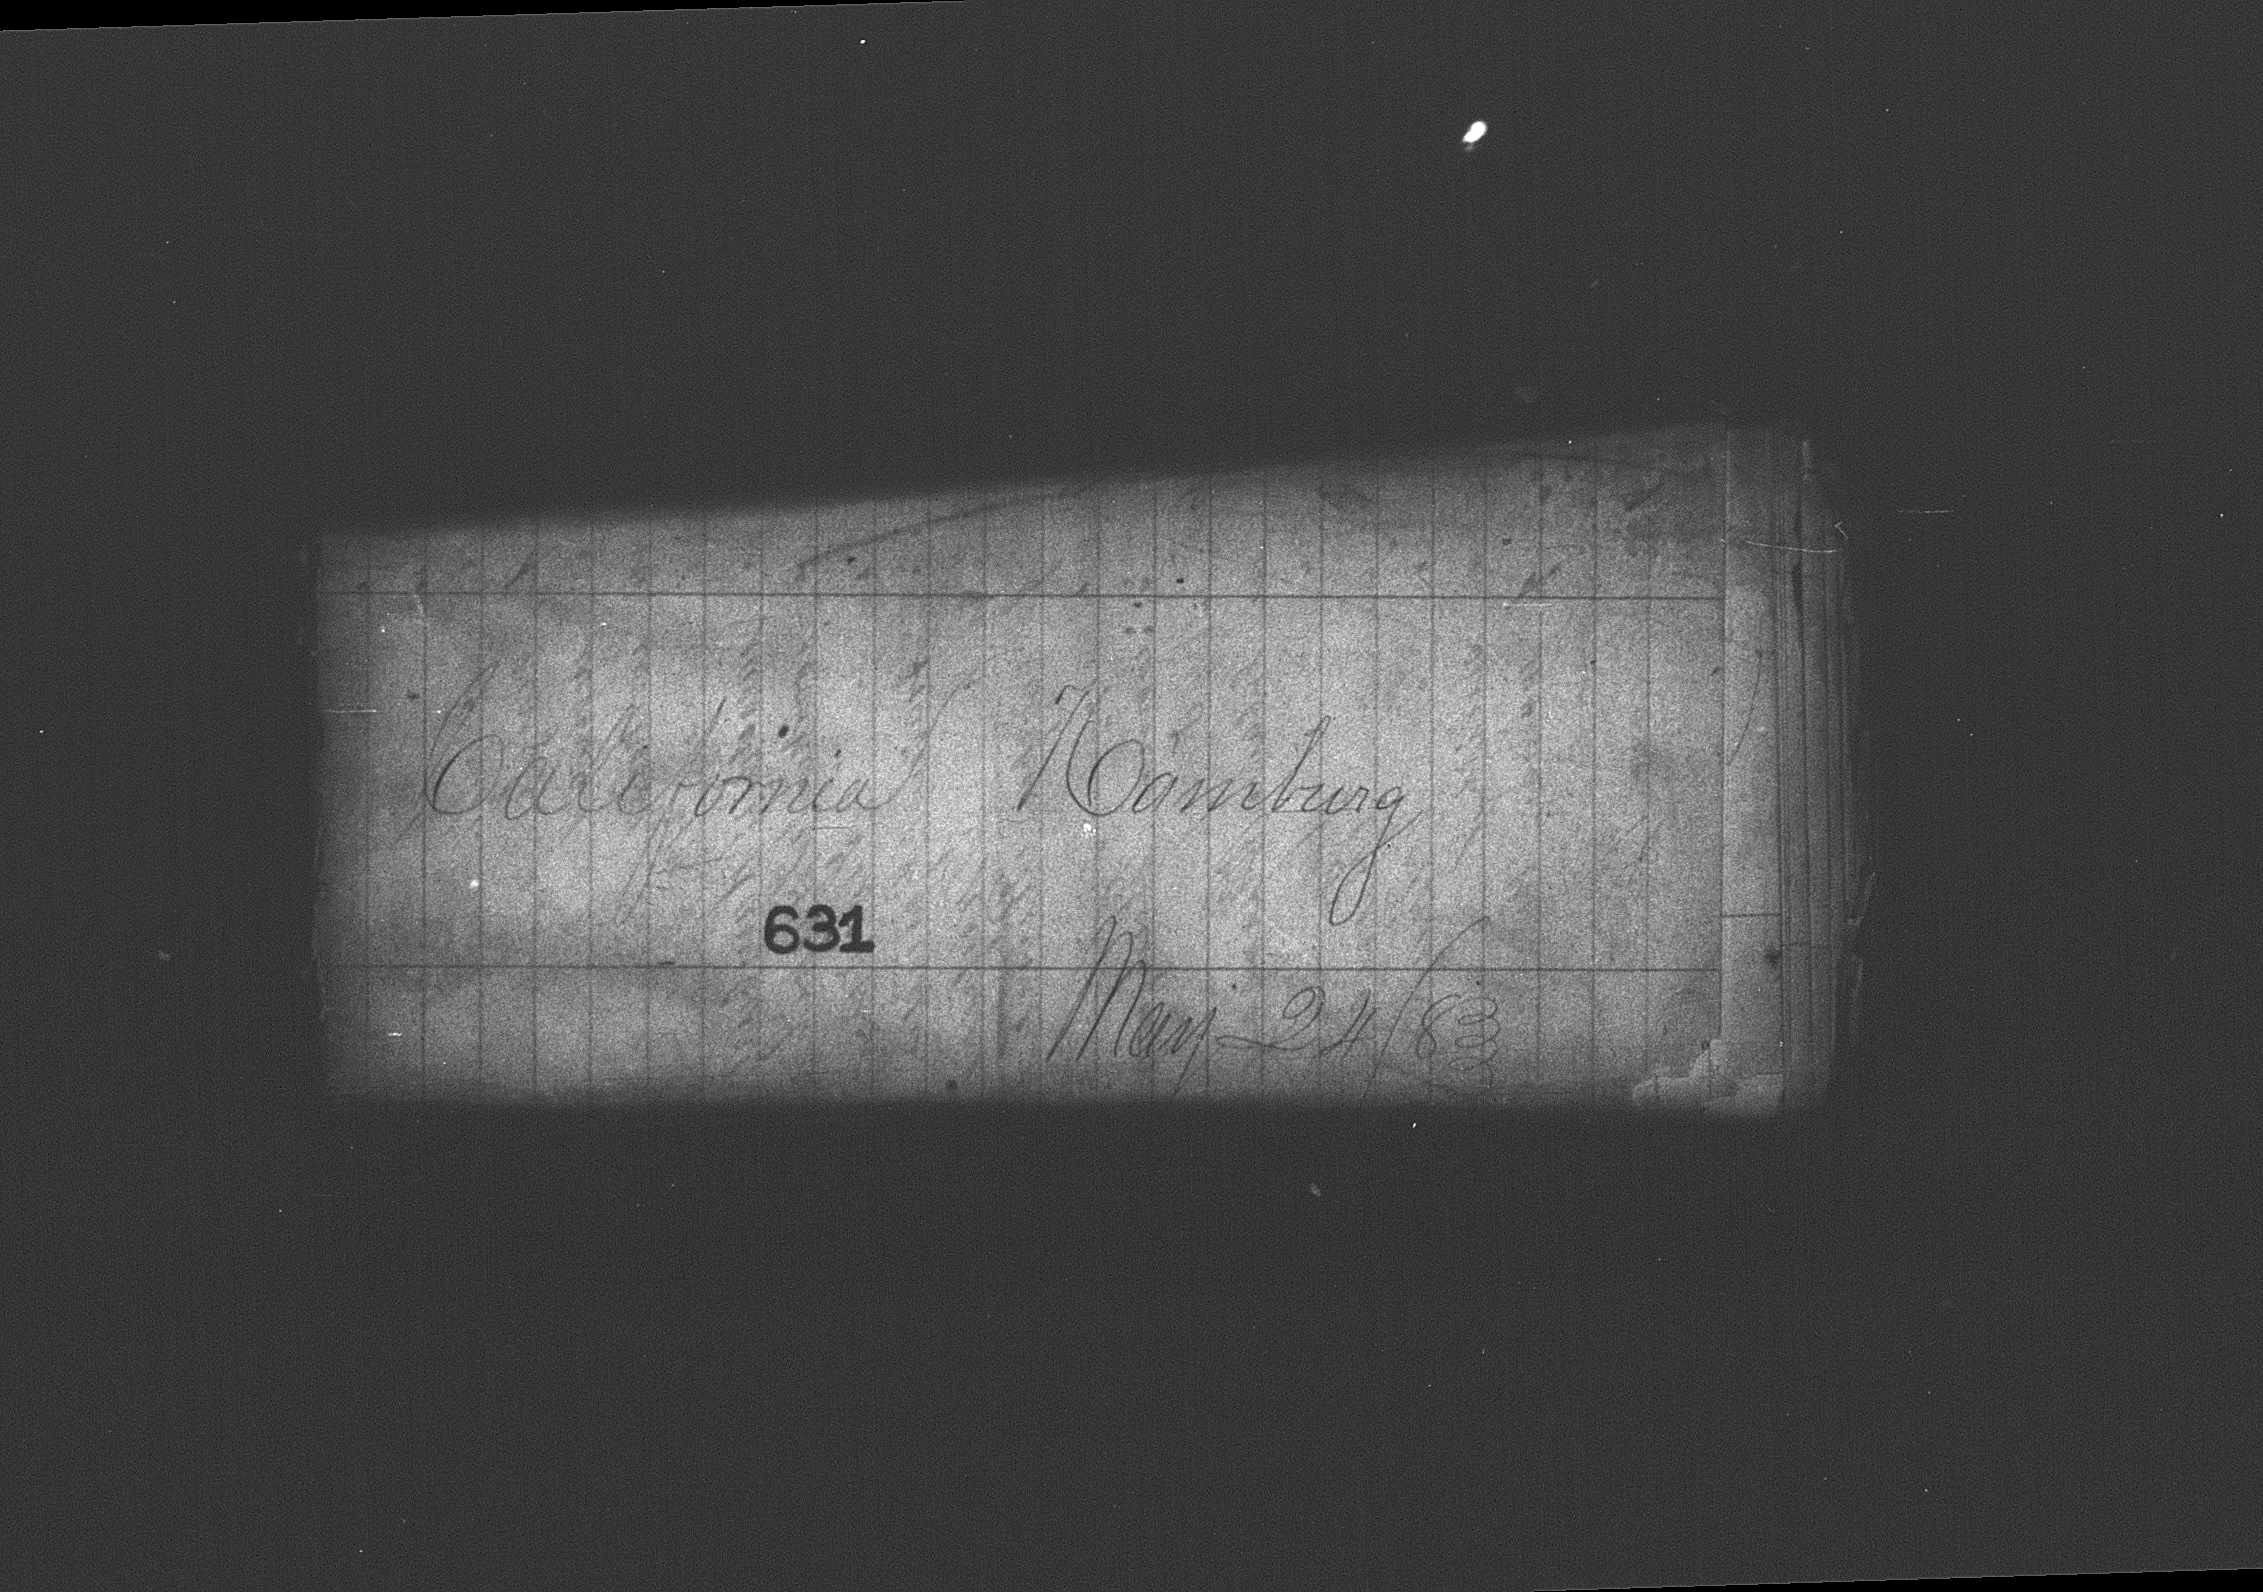 California Hamburg
631
May 24/83